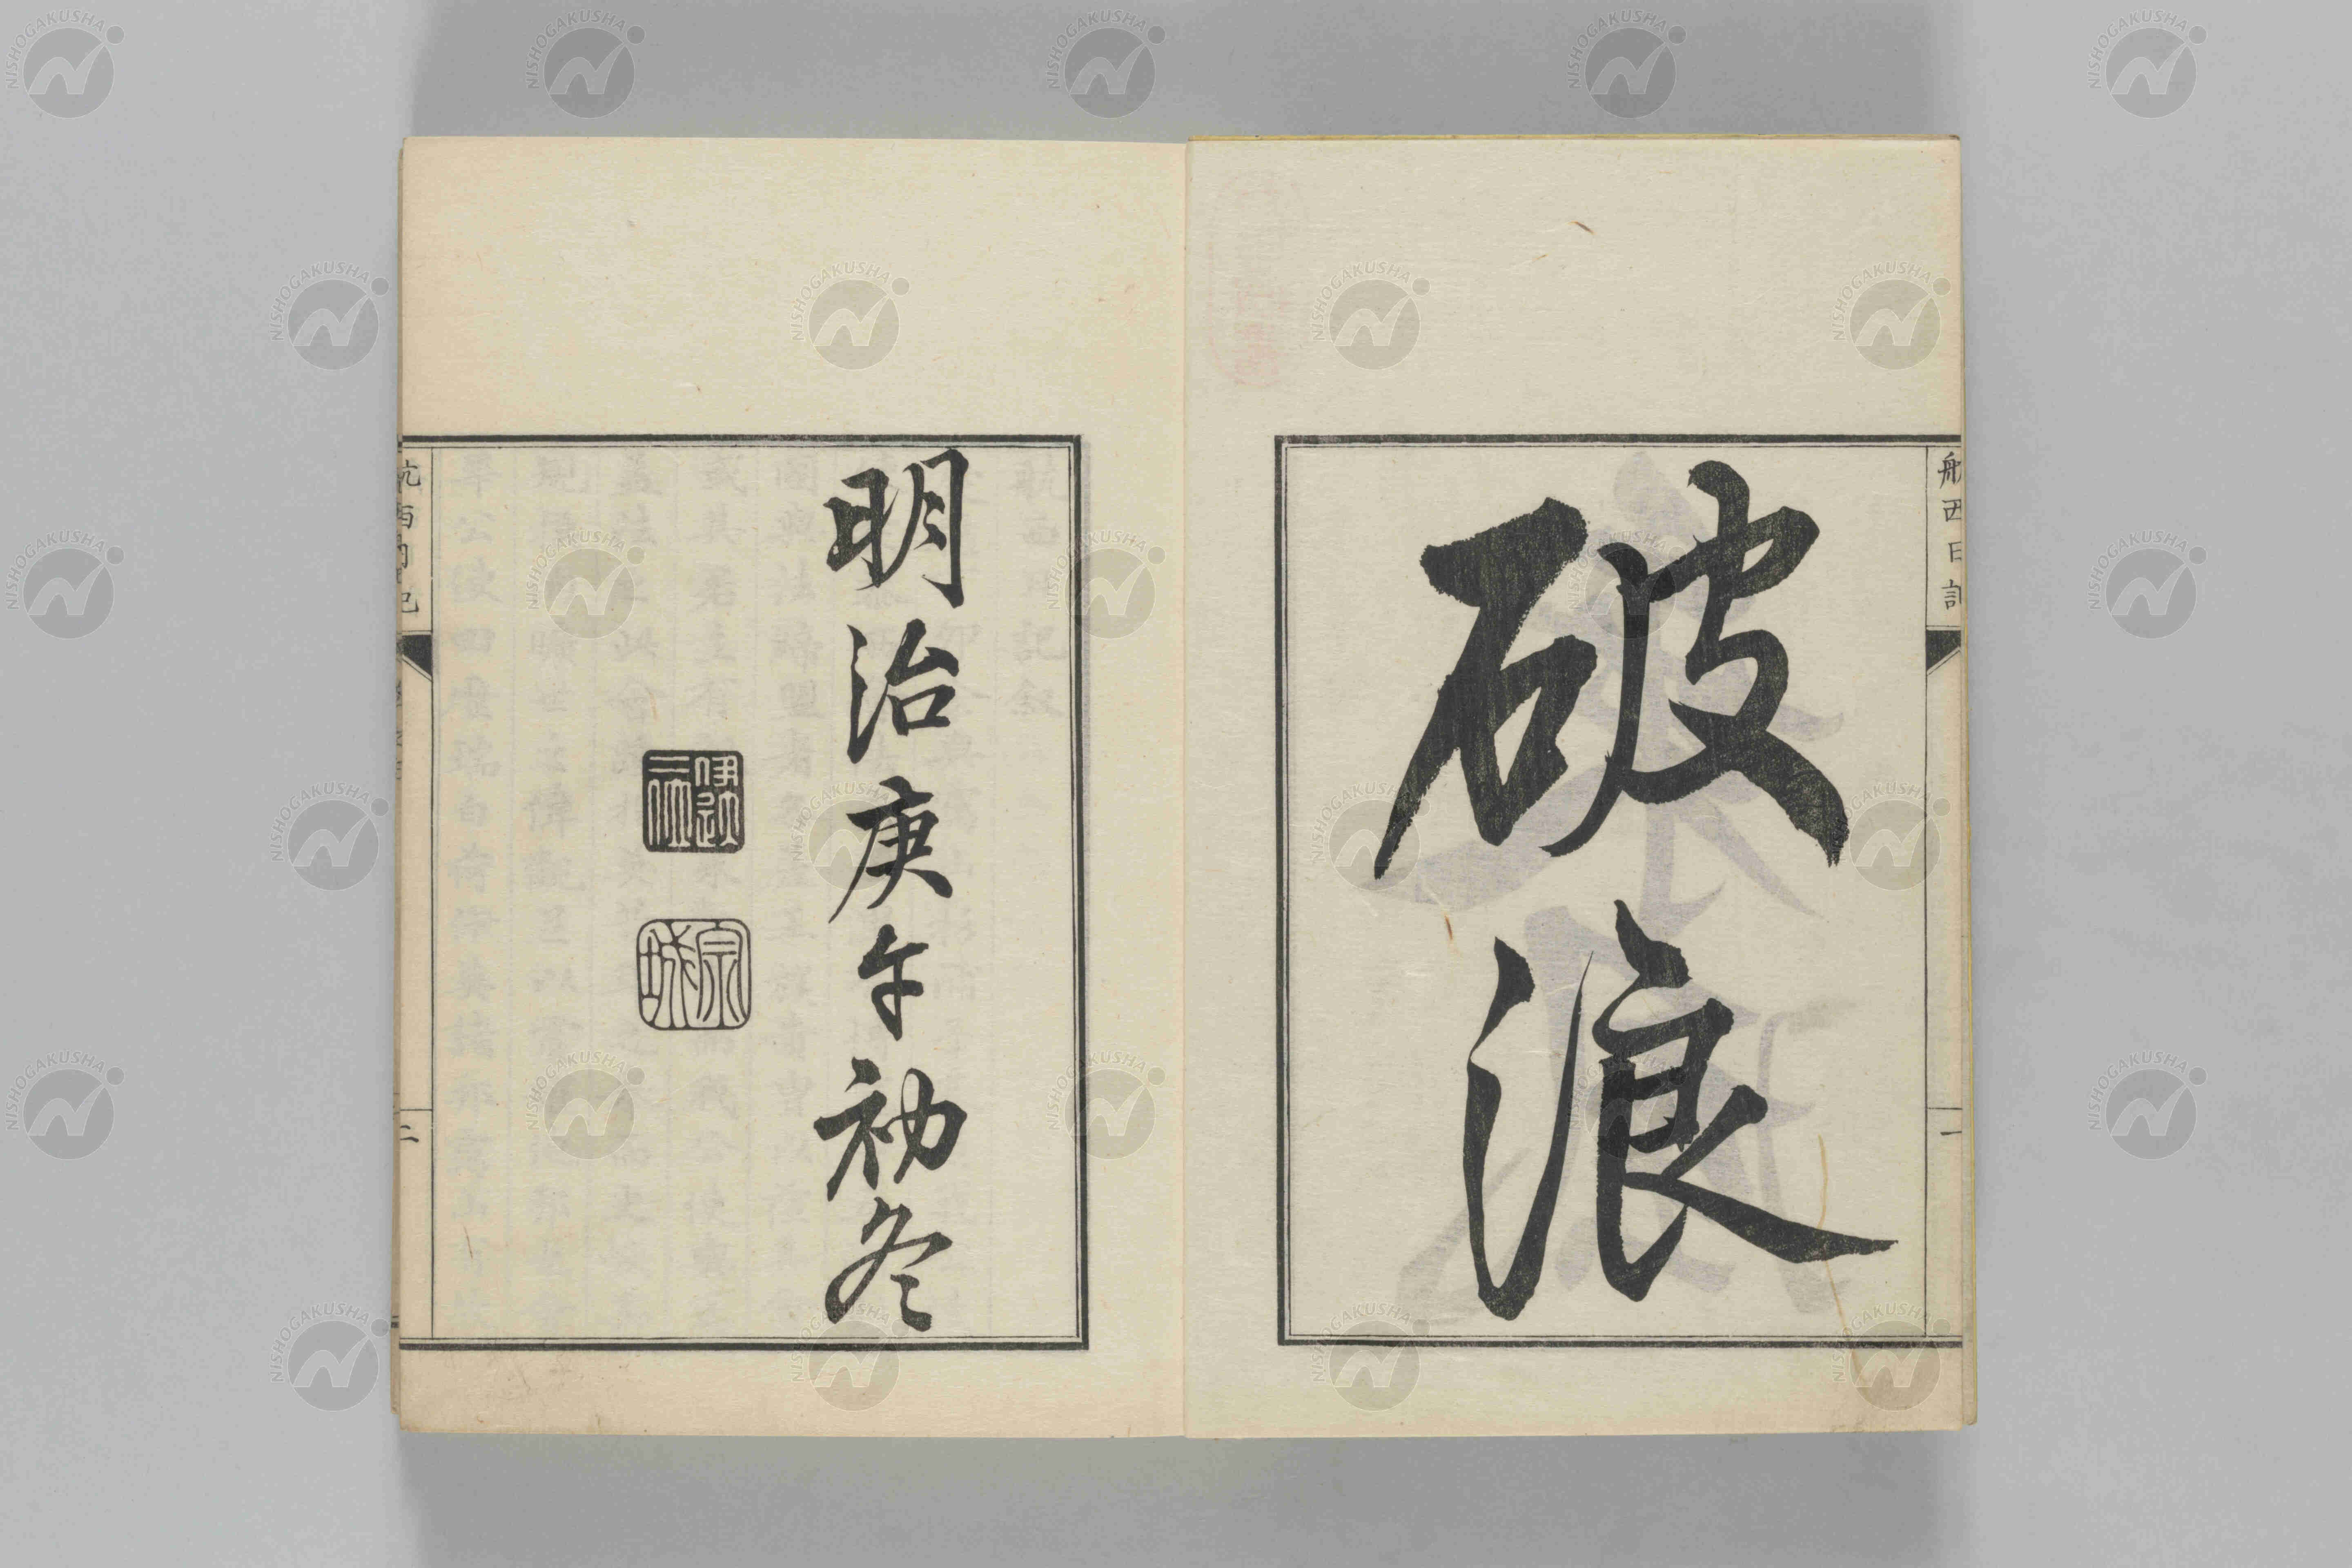 航西日記
一
破浪
明治庚午初冬
伊達
三位
宗城
航西日記
二
NISHOGAKUSHA